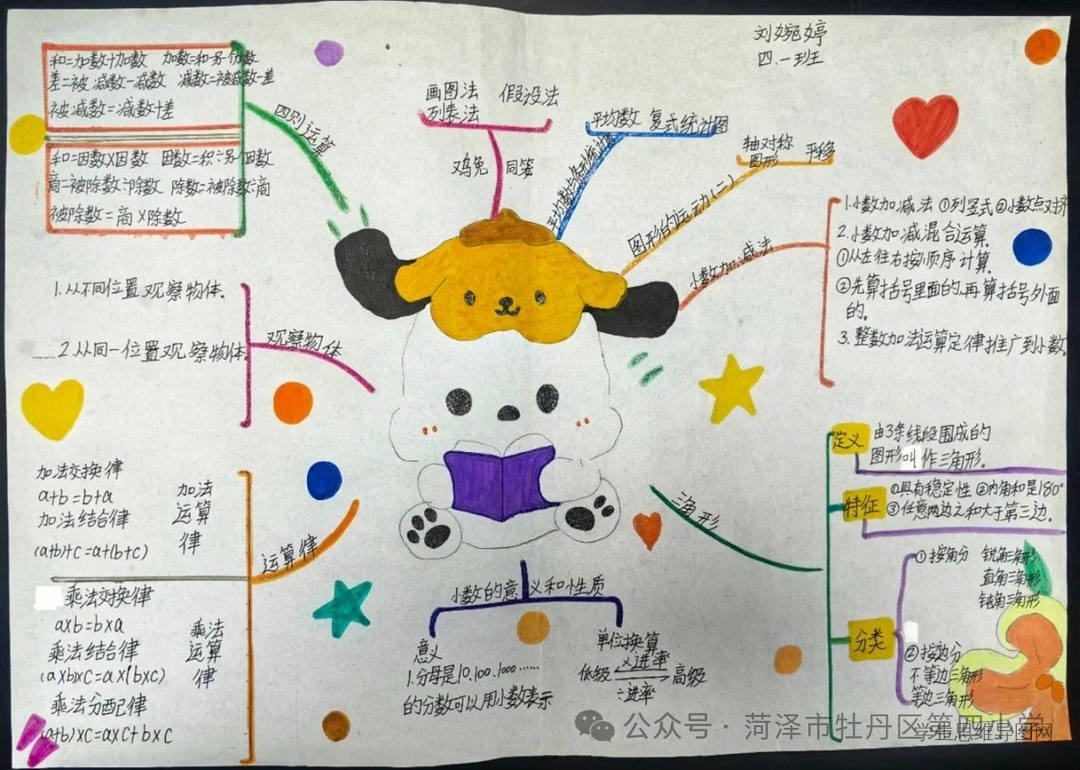 刘婉婷
四.一班
四则运算
和=加数+加数 加数=和-另一个加数
差=被减数-减数 减数=被减数-差
被减数=减数+差
和=因数×因数 因数=积÷另一个因数
商=被除数÷除数 除数=被除数÷商
被除数=商×除数
画图法 假设法
列表法
鸡兔同笼
平均数 复式统计图
轴对称图形 平移
图形的运动(二)
小数加减法
1.小数加减法 ①列竖式 ②小数点对齐
2.小数加减混合运算.
①从左往右按顺序计算.
②先算括号里面的,再算括号外面
的.
3.整数加法运算定律推广到小数.
观察物体
1.从不同位置观察物体.
2.从同一位置观察物体.
运算律
加法交换律
a+b=b+a
加法结合律
(a+b)+c=a+(b+c)
加法
运算
律
乘法交换律
a×b=b×a
乘法结合律
(a×b)×c=a×(b×c)
乘法分配律
(a+b)×c=a×c+b×c
乘法
运算
律
小数的意义和性质
意义
1.分母是10.100.1000……
的分数可以用小数表示
单位换算
低级 ×进率 高级
÷进率
三角形
定义
由3条线段围成的
图形叫作三角形.
特征
①具有稳定性 ②内角和是180°
③任意两边之和大于第三边.
分类
①按角分 锐角三角形
直角三角形
钝角三角形
②按边分
不等边三角形
等边三角形
公众号·菏泽市牡丹区第四小学
学生思维导图网